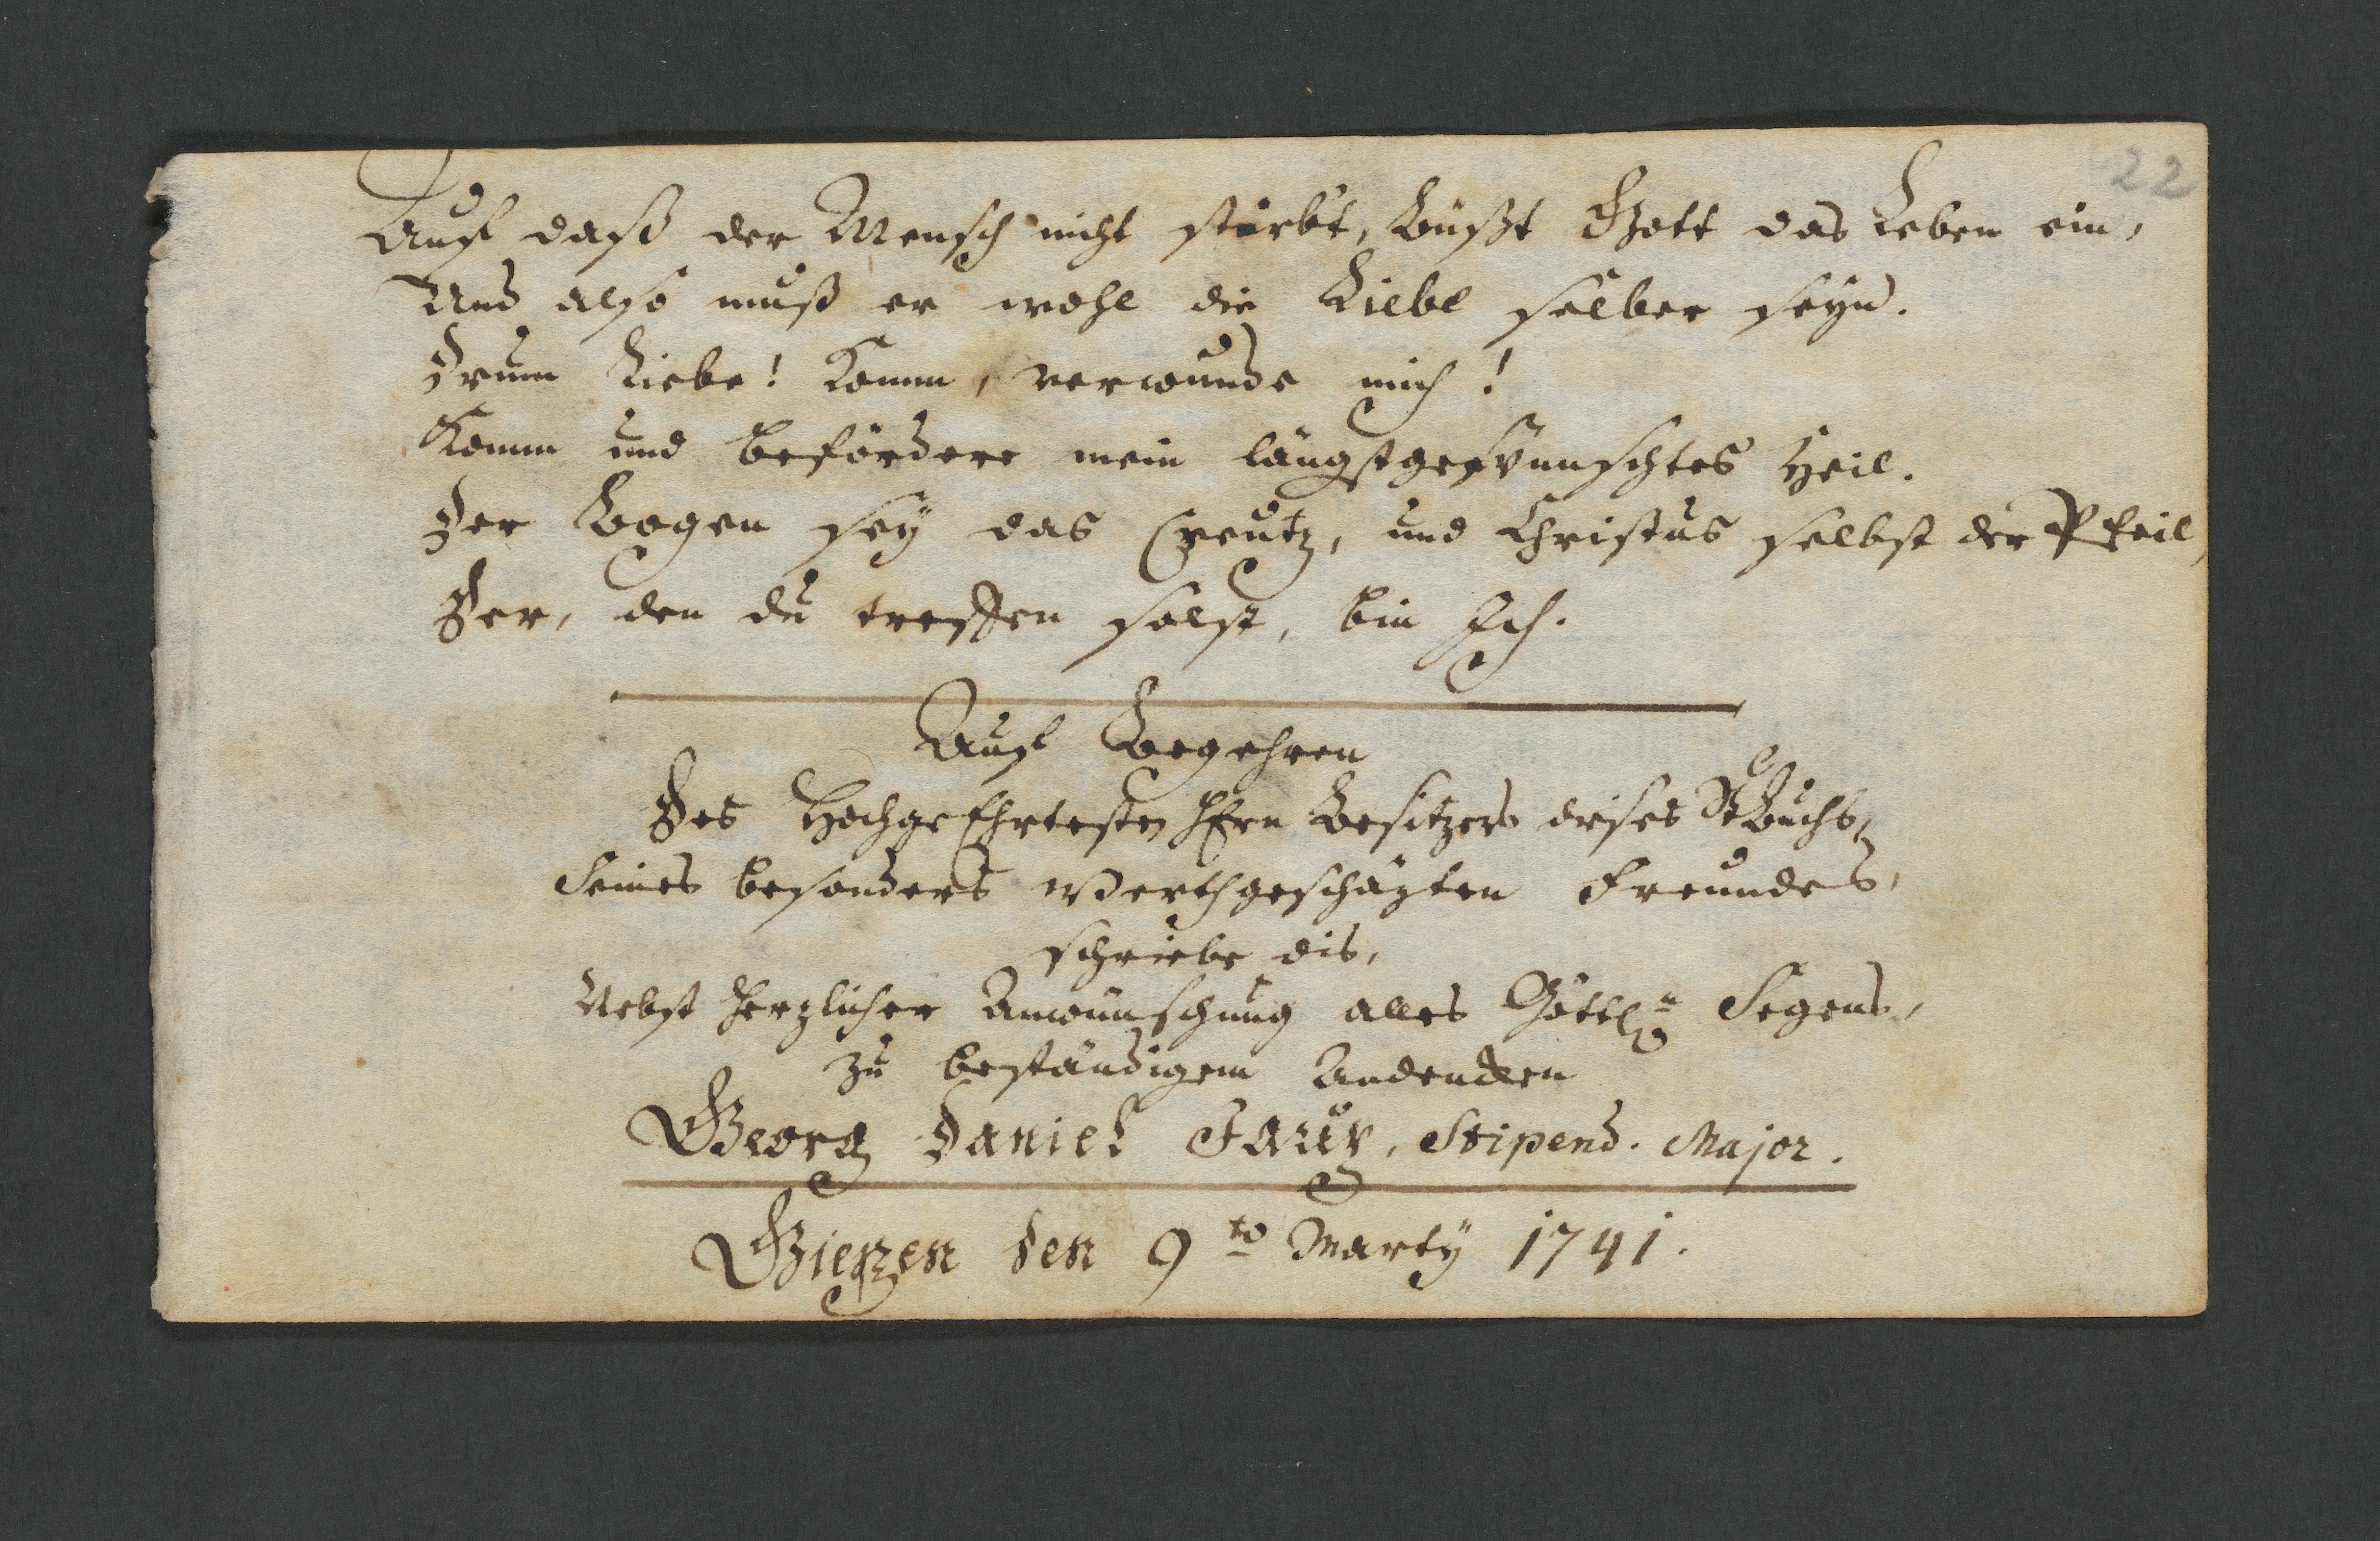 22
Auf daß der Mensch nicht stürbt, büßt Gott das Leben ein,
Und also muß er wohl die Liebe selber seyn.
Drum Liebe! Komm, verwunde mich!
Komm und befördere mein längstgewünschtes Heil.
Der Bogen sey das Creutz, und Christus selbst der Pfeil,
Der, den du treffen solst, bin Ich.
Auf Begehren
Des HochgeEhrtesten Hrn Besitzers dises StBuchs,
Seines besonders Werthgeschäzten Freundes,
schriebe dis,
Nebst herzlicher Anwünschung alles Göttl.n Segens,
zu beständigem Andencken
Georg Daniel Stipend. Major.
Gießen den 9to Martÿ 1741.